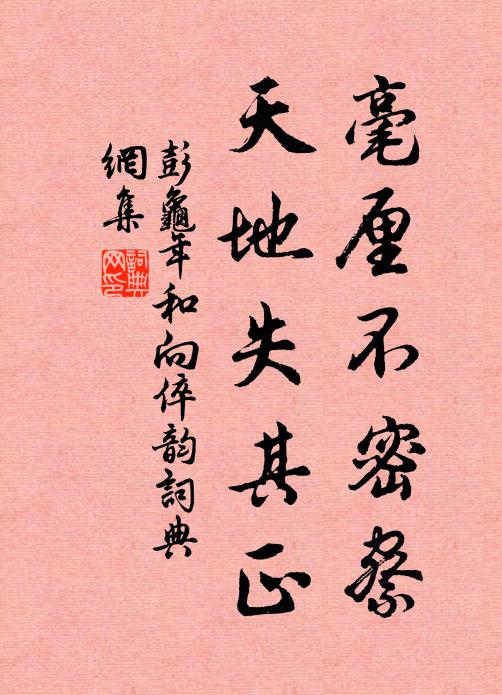 毫厘不密察
天地失其正
彭龜年和向倅韵詞典
網集
詞典
网印